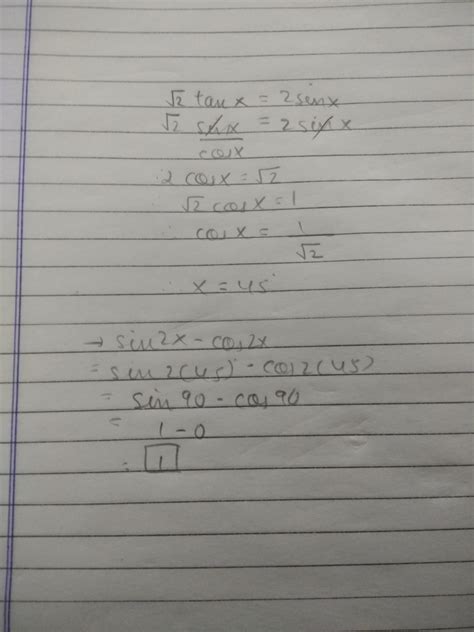 √2 tan x = 2 sin x
√2 sin x / cos x = 2 sin x
2 cos x = √2
√2 cos x = 1
∴ cos x = 1/√2
∴ x = 45°
→ sin 2x - cos 2x
= sin 2(45)° - cos 2(45)
= sin 90 - cos 90
= 1 - 0
= 1